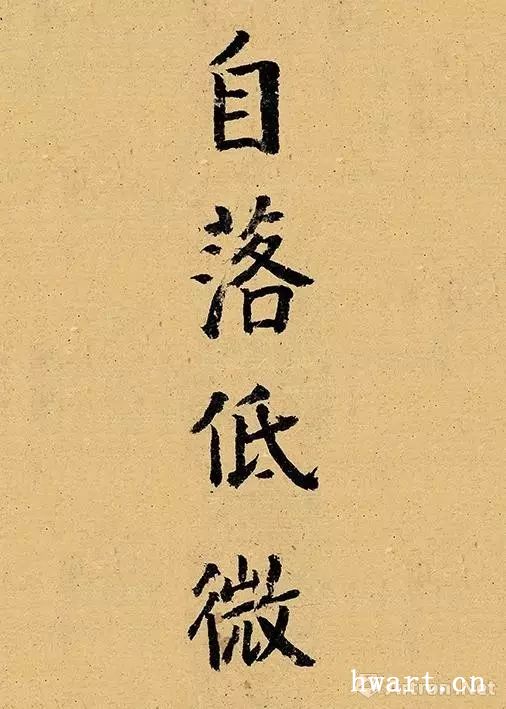 自落低微
hwart.cn